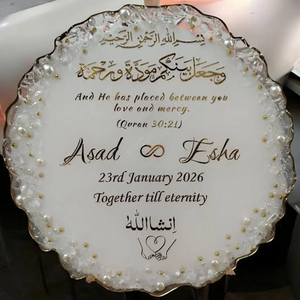 بسم الله الرحمن الرحيم
وجعل بينكم مودة ورحمة
And He has placed between you
love and mercy.
(Quran 30:21)
Asad ∞ Esha
23rd January 2026
Together till eternity
إنشاالله